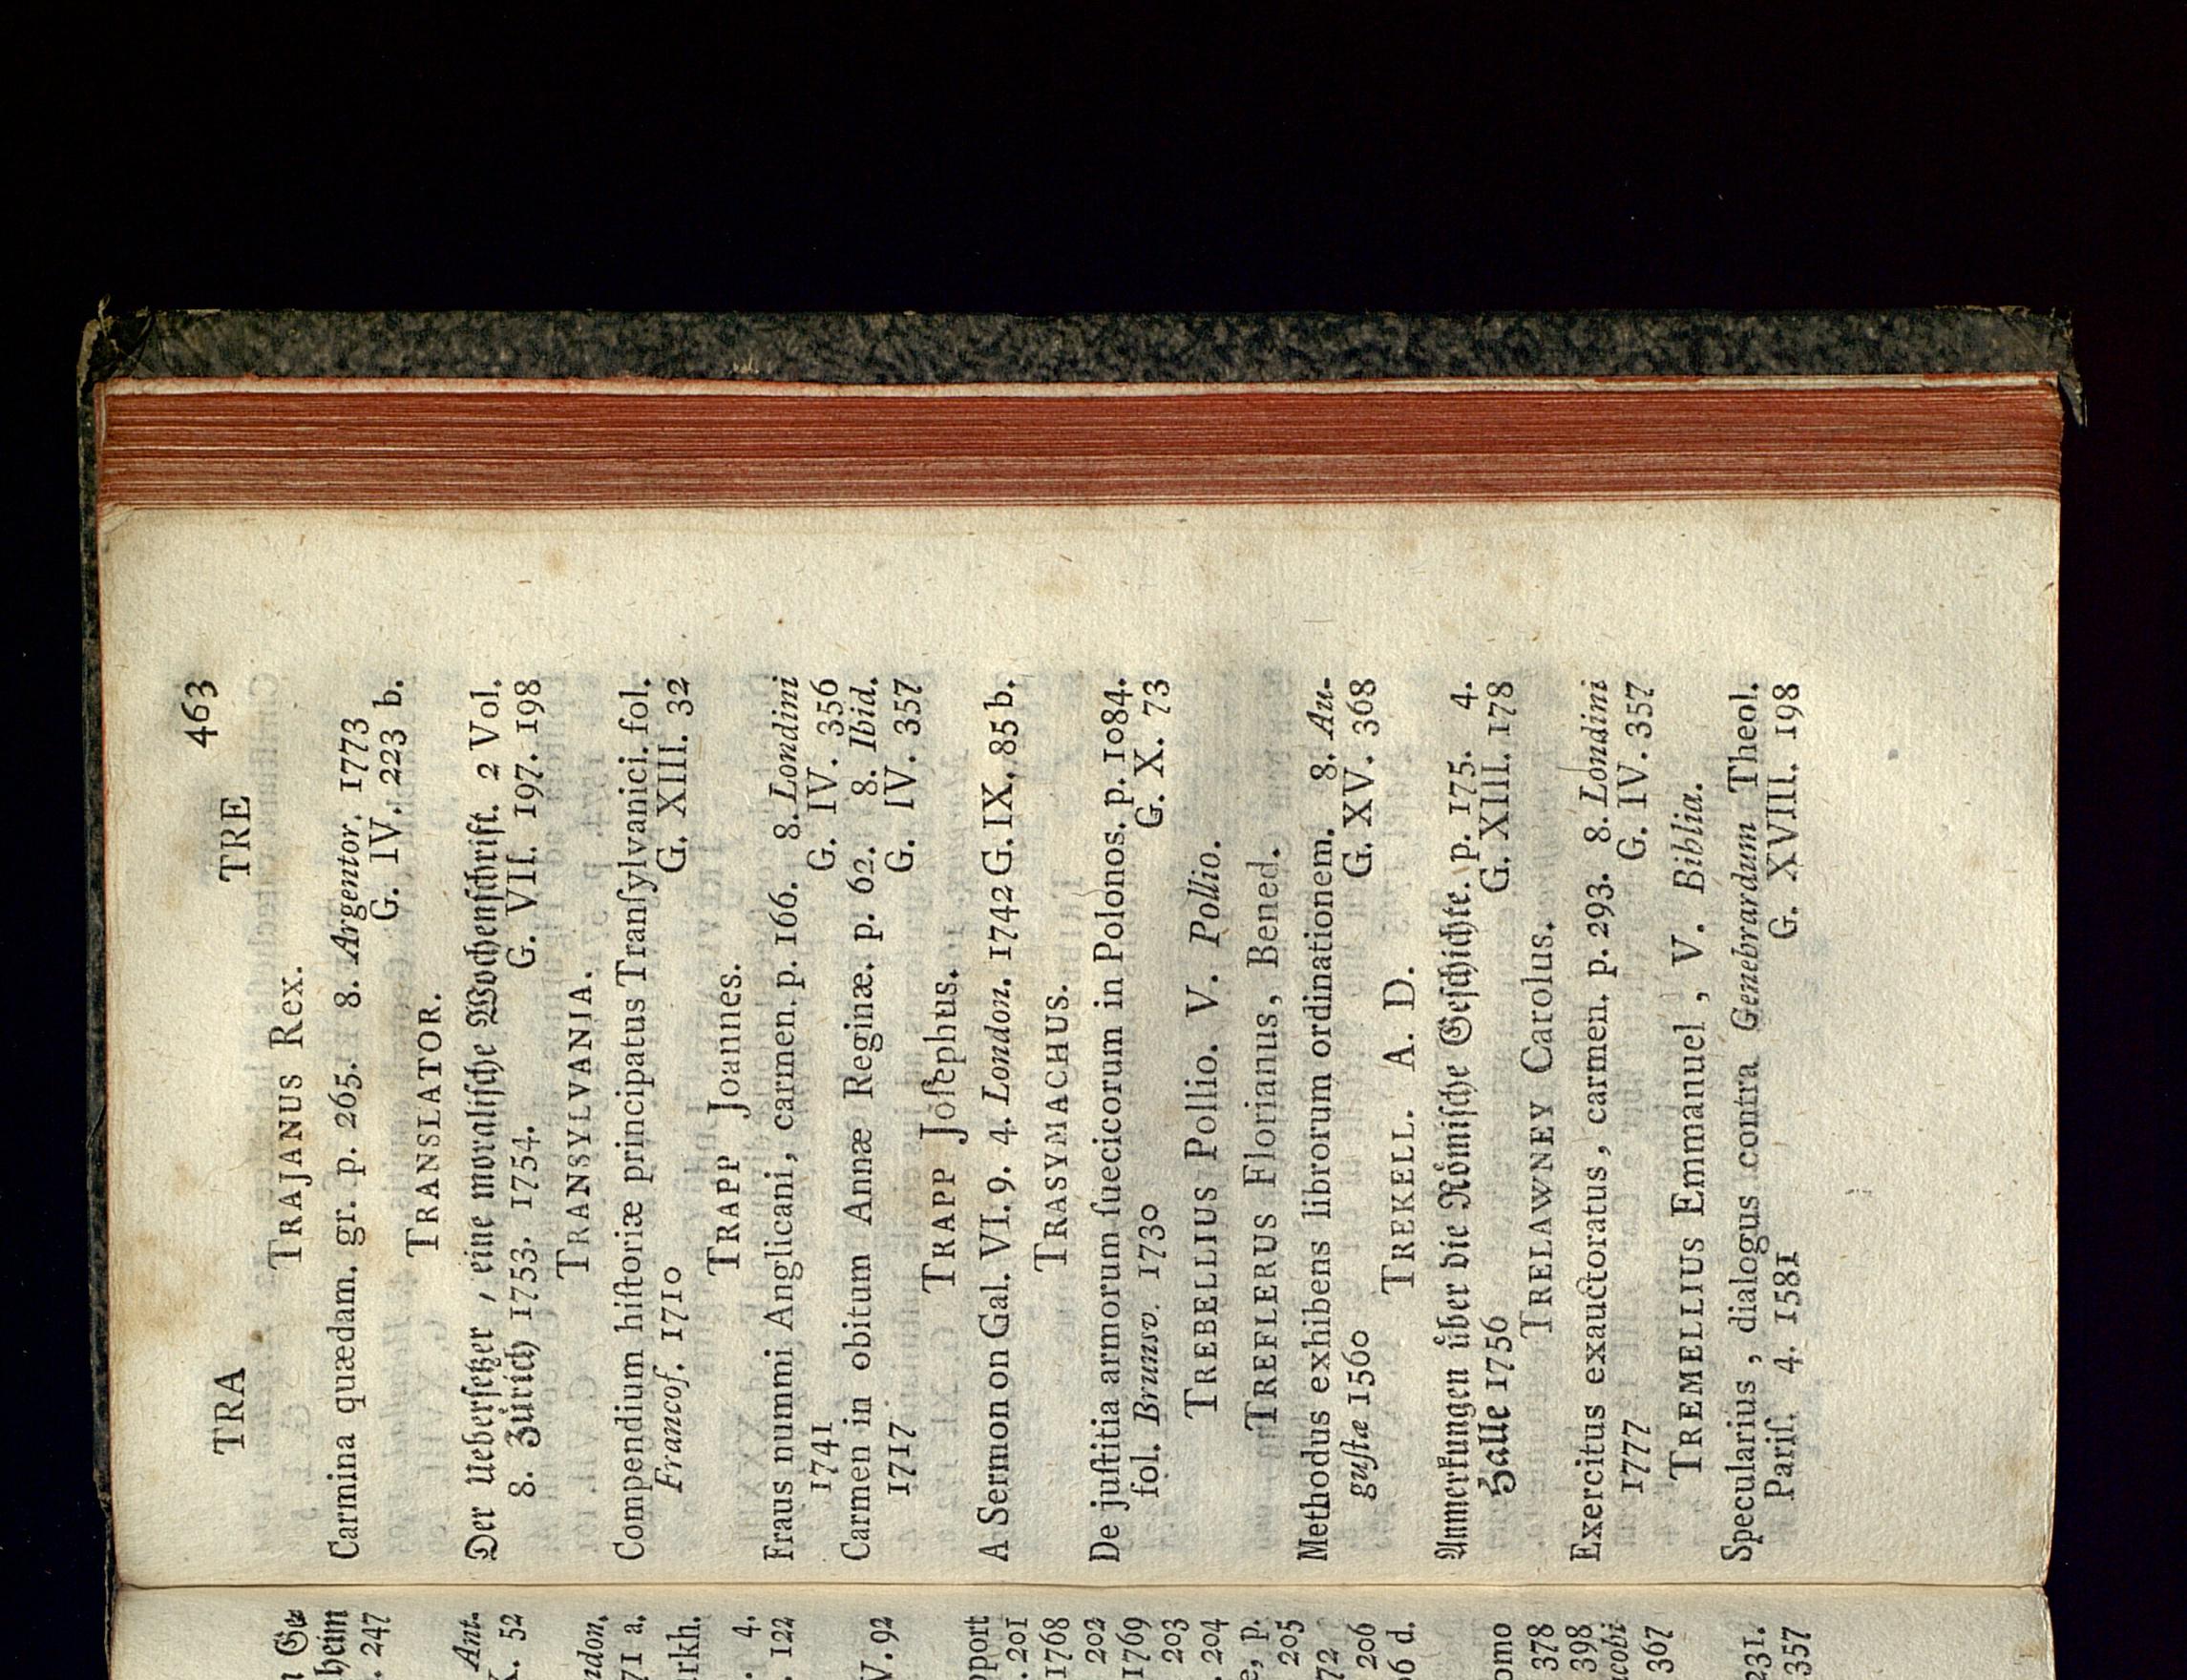 n Ge
heim
. 247
Ant.
X. 52
ndon.
71 a.
rkh.
. 4.
. 122
V. 92
pport
. 201
1768
202
1769
203
. 204
e, p.
205
72
206
06 d.
omo
378
398
acobi
367
231.
357
TRA TRE 463
TRAJANUS Rex.
Carmina quædam. gr. p. 265. 8. Argentor. 1773
G. IV. 223 b.
TRANSLATOR.
Der Ueberſetzer, eine moraliſche Wochenſchrift. 2 Vol.
8. Zürich 1753. 1754. G. VII. 197. 198
TRANSYLVANIA.
Compendium hiſtoriæ principatus Tranſylvanici. fol.
Francof. 1710 G. XIII. 32
TRAPP Joannes.
Fraus nummi Anglicani, carmen. p. 166. 8. Londini
1741 G. IV. 356
Carmen in obitum Annæ Reginæ. p. 62. 8. Ibid.
1717 G. IV. 357
TRAPP Joſephus.
A Sermon on Gal. VI. 9. 4. London. 1742 G. IX. 85 b.
TRASYMACHUS.
De juſtitia armorum ſuecicorum in Polonos. p. 1084.
fol. Brunsv. 1730 G. X. 73
TREBELLIUS Pollio. V. Pollio.
TREFLERUS Florianus, Bened.
Methodus exhibens librorum ordinationem. 8. Au-
guſtæ 1560 G. XV. 368
TREKELL. A. D.
Anmerkungen über die Römiſche Geſchichte. p. 175. 4.
Halle 1756 G. XIII. 178
TRELAWNEY Carolus.
Exercitus exauctoratus, carmen. p. 293. 8. Londini
1777 G. IV. 357
TREMELLIUS Emmanuel, V. Biblia.
Specularius, dialogus contra Genebrardum Theol.
Pariſ. 4. 1581 G. XVIII. 198